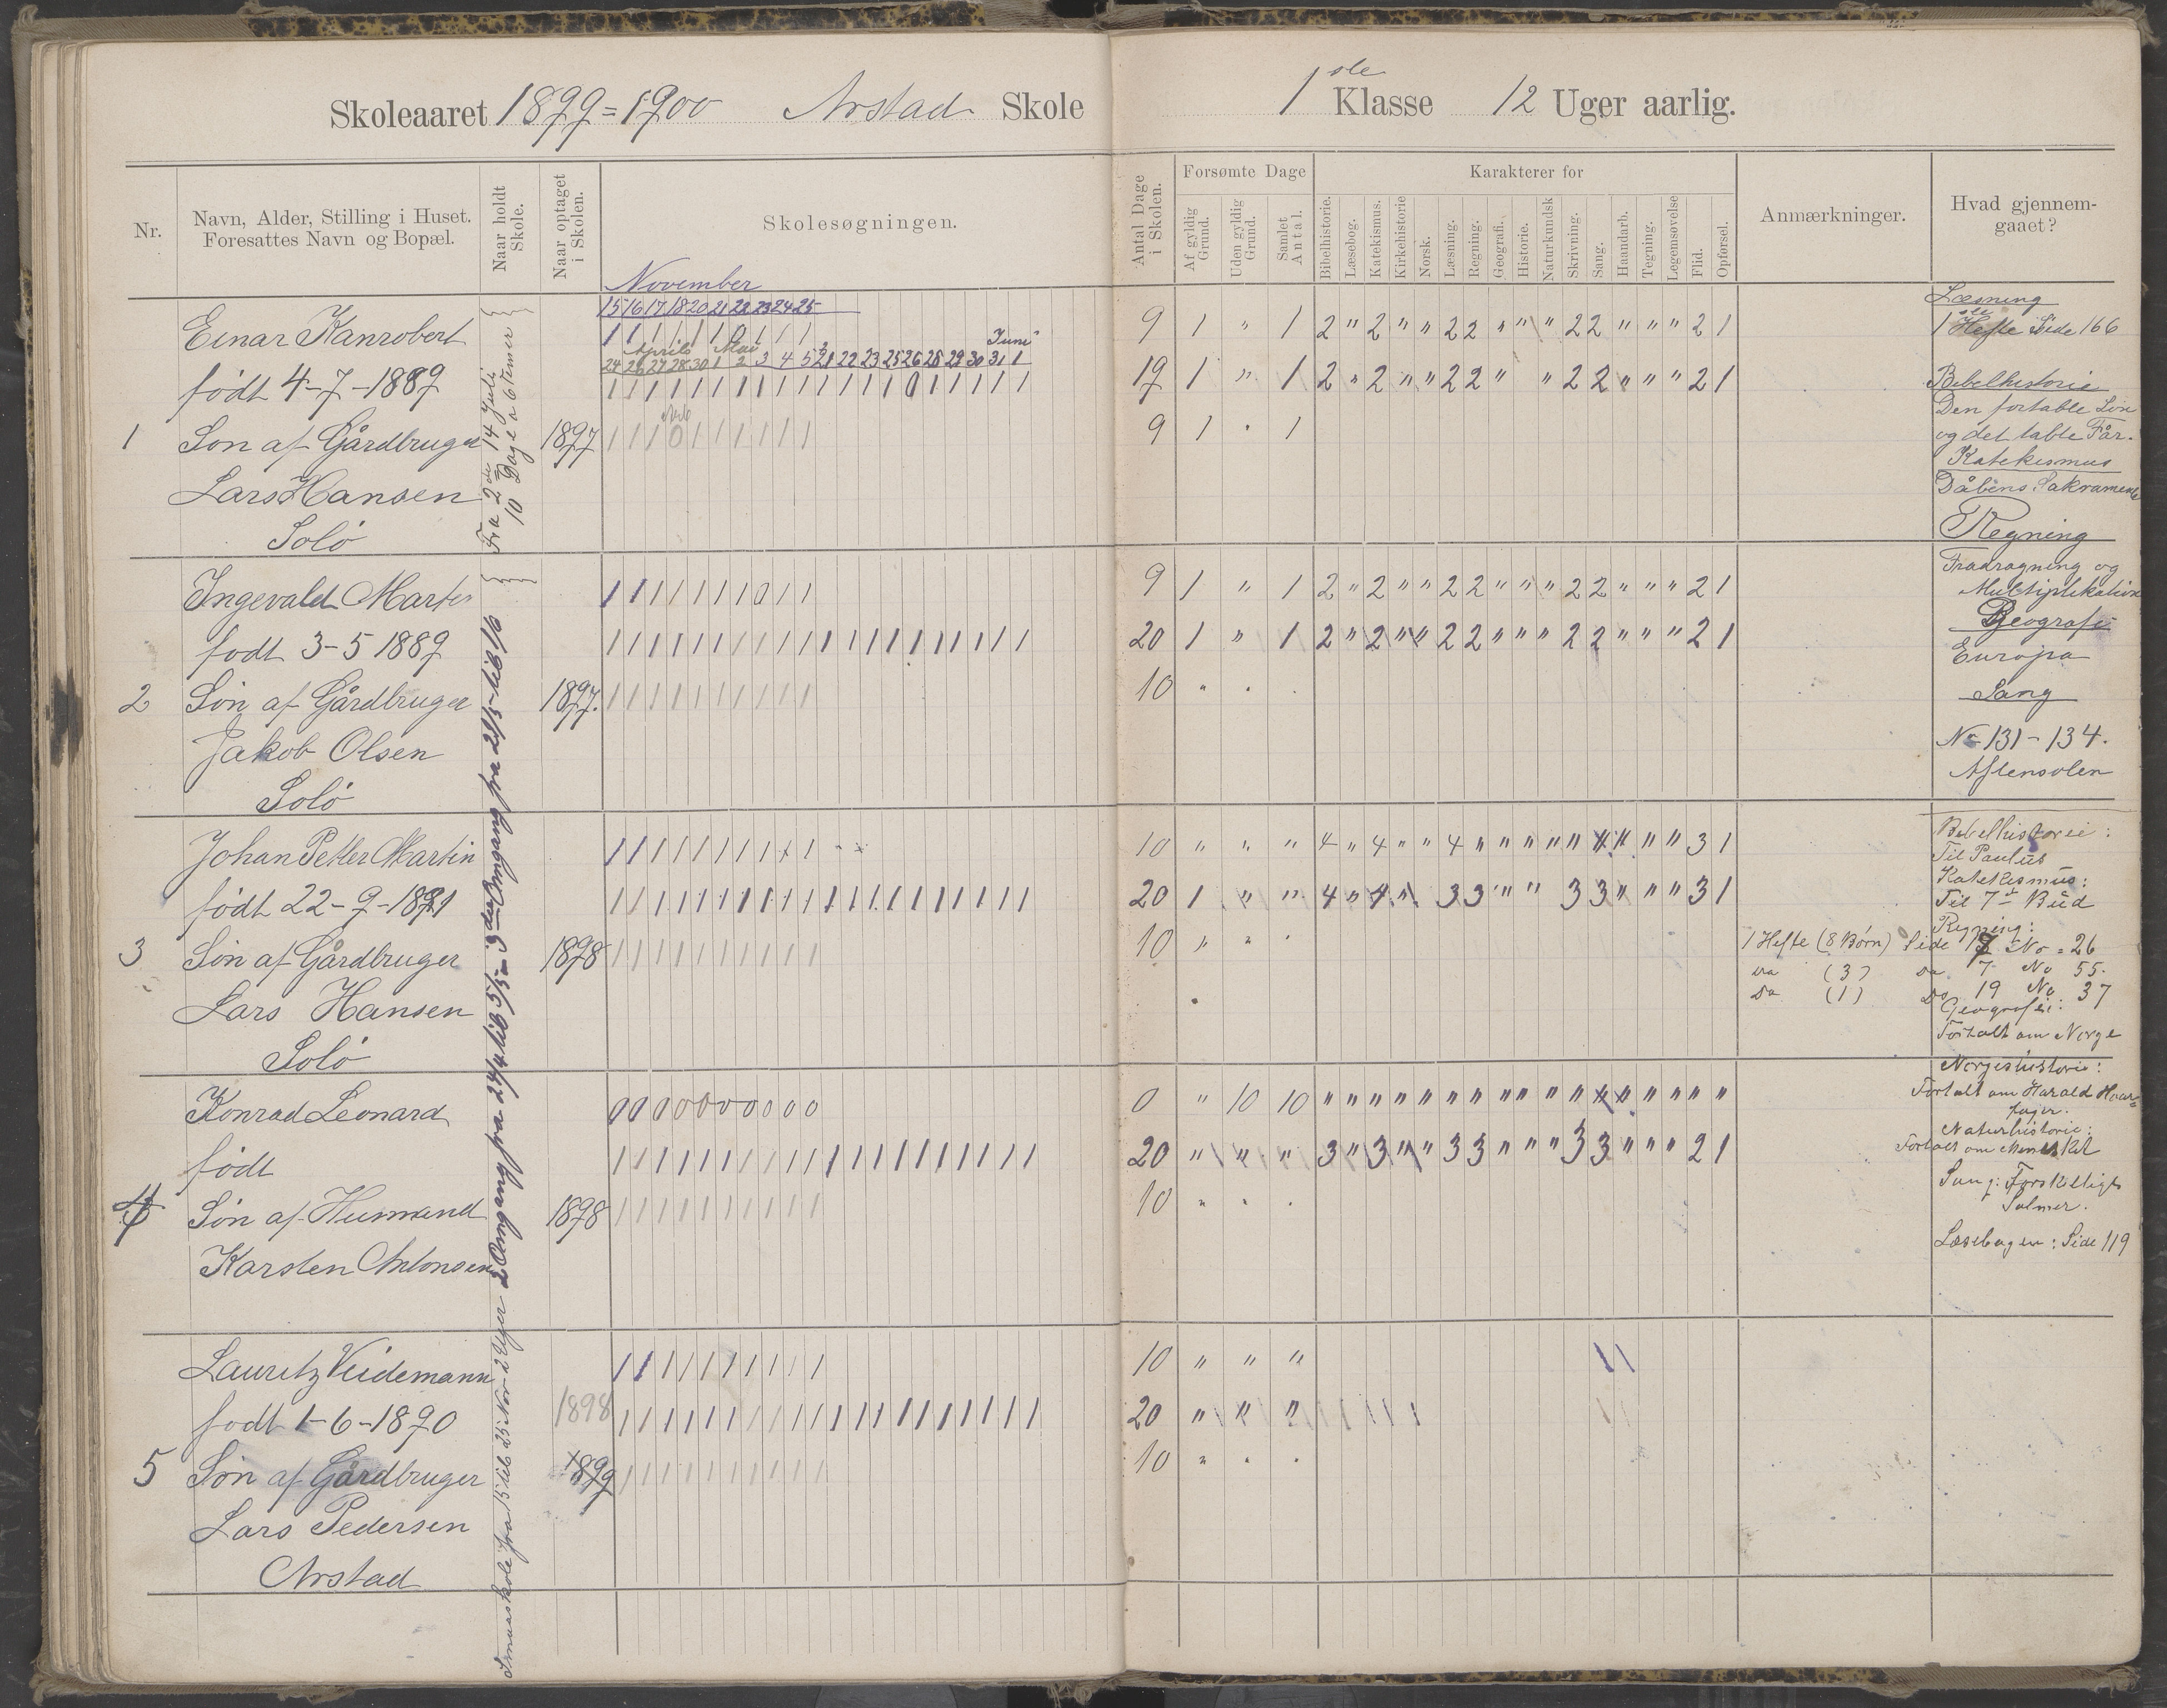 Skoleaaret 1899=1900 Arstad Skole
1ste Klasse 12 Uger aarlig.
Nr.
Navn, Alder, Stilling i Huset.
Foresattes Navn og Bopæl.
Naar holdt
Skole.
Naar optaget
i Skolen.
Skolesøgningen.
Antal Dage
i Skolen.
Forsømte Dage
Af gyldig
Grund.
Uden gyldig
Grund.
Samlet
Antal.
Karakterer for
Bibelhistorie.
Læsebog.
Katekismus.
Kirkehistorie
Norsk.
Læsning.
Regning.
Geografi.
Historie.
Naturkundsk
Skrivning.
Sang.
Haandarb.
Tegning.
Legemsøvelse
Flid.
Opførsel.
Anmærkninger.
Hvad gjennem-
gaaet?
November
15 16 17 18 20 21 22 23 24 25
Einar Kanrobert
født 4-7-1889
1 Søn af Gårdbruger 1897
Lars Hansen
Solø
Fra 2den 14 Juli
10 Dage a 6 Timer
April Mai Juni
24 26 27 28 30 1 2 3 4 5 21 22 23 25 26 28 29 30 31 1
9 1 " 1 2 " 2 " " 2 2 " " " 2 2 " " " 2 1
19 1 " 1 2 " 2 " " 2 2 " " 2 2 " " " 2 1
9 1 . 1
Læsning
1ste Hefte Side 166
Bibelhistorie
Den fortabte Søn
og det tabte Får.
Katekismus
Dåbens Sakramente
Regning
Fradragning og
Multiplikation
Geografi
Europa
Sang
No 131-134.
Aftensolen
Ingevald Martin
født 3-5 1889
2 Søn af Gårdbruger 1897.
Jakob Olsen
Solø
9 1 " 1 2 " 2 " " 2 2 " " " 2 2 " " " 2 1
20 1 " 1 2 " 2 " " 2 2 " " " 2 2 " " " 2 1
10 " .
Johan Petter Martin
født 22-9-1891
3 Søn af Gårdbruger 1898
Lars Hansen
Solø
10 " " " 4 " 4 " " 4 " " " " " " " " 3 1
20 1 " " 4 " 4 " 3 3 " " 3 3 " " " 3 1
10 " " .
Bibelhistorie:
Til Paulus
Katekismus:
Til 7de Bud
Regning:
1 Hefte (8 Børn) Side 9 No = 26
Do (3) Do 7 No 55.
Do (1) Do 19 No 37
Geografi:
Fortalt om Norge
Norgeshistorie:
Fortalt om Harald Haar-
fager.
Naturhistorie:
Fortalt om Mennesket
Sang: Forskellige
Salmer.
Læsebogen: Side 119
Konrad Leonard
født
4 Søn af Husmand 1898
Karsten Antonsen
0 0 0 0 0 0 0 0 0 0
0 " 10 10 " " " " " " " " " " " " " " " " "
20 " " " 3 " 3 " " 3 3 " " " 3 3 " " " 2 1
10 " . .
Lauritz Veidemann
født 1-6-1890
1898
5 Søn af Gårdbruger 1899
Lars Pedersen
Arstad
10 " " "
20 " " "
10 " . .
Småskole fra 15 til 25 Nov 2 Uger 2 Omgang fra 24/4 til 5/5 - 3die Omgang fra 21/5 til 1/6